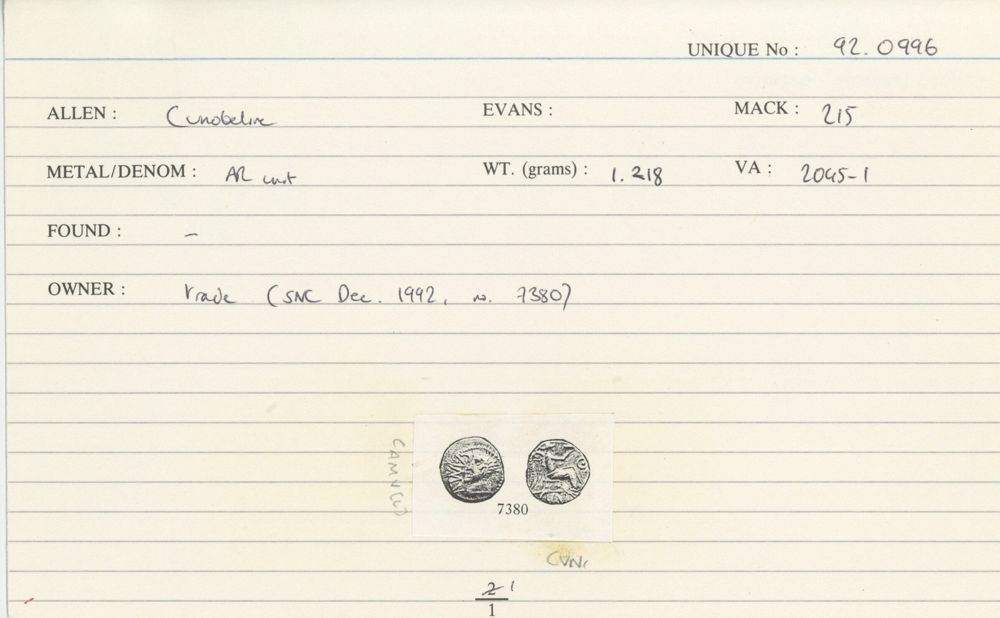 UNIQUE No : 92.0996
ALLEN : Cunobeline EVANS : MACK : 215
METAL/DENOM : AR unit WT. (grams) : 1.218 VA : 2045-1
FOUND : –
OWNER : trade (SNC Dec. 1992, no. 7380)
7380
CVN
2 1
1